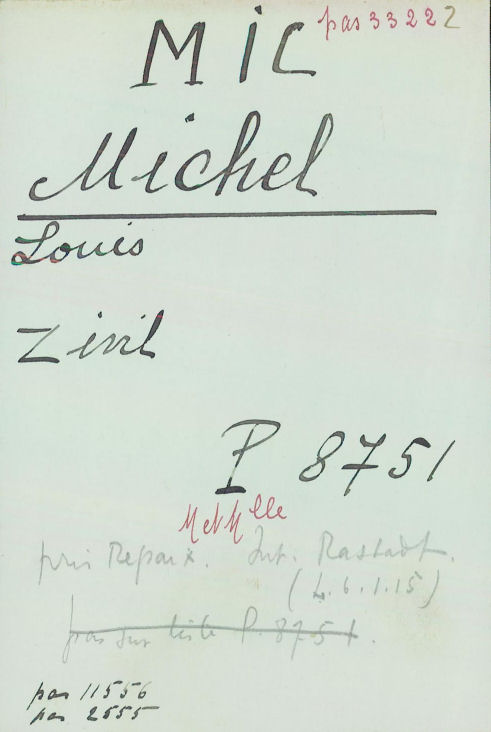 pas 33222
MIC
Michel
Louis
Zivil
P 8751
M et Mlle
pris Repaix. Int. Rastadt.
(L. 6.1.15)
pas sur liste P. 8751.
par 11556
par 2555